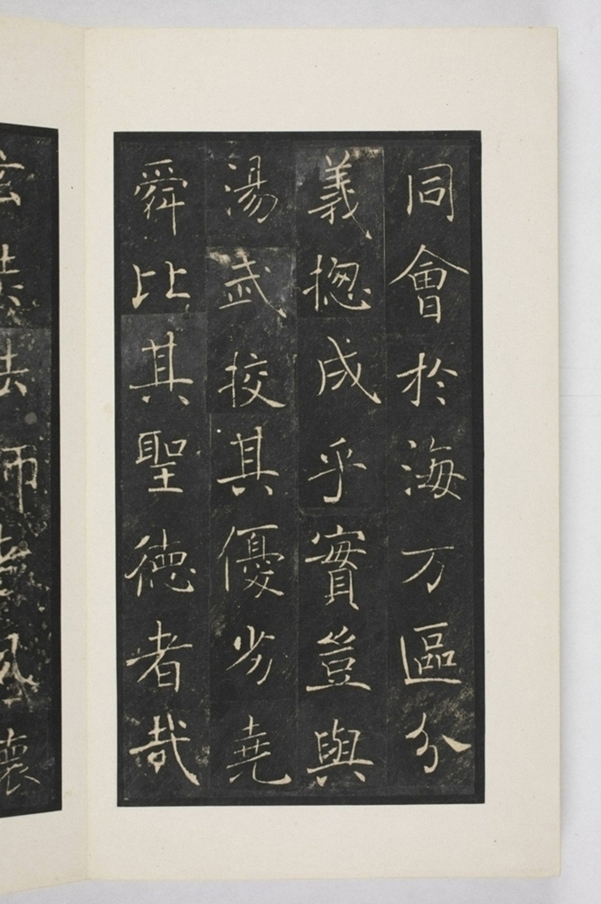 同會於海万區分
義揔成乎實豈與
湯武挍其優劣堯
舜比其聖德者哉
玄奘法師者夙懷